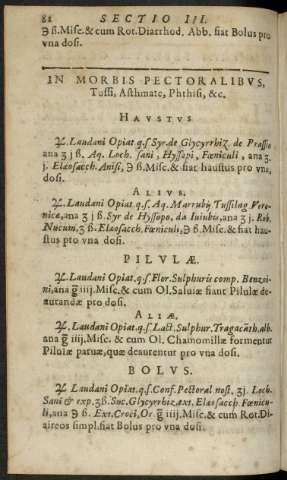 82 SECTIO III.
℈ ß. Misc. & cum Rot. Diarrhod. Abb. fiat Bolus pro
vna dosi.
IN MORBIS PECTORALIBVS,
Tussi, Asthmate, Phthisi, &c.
HAVSTVS
♃. Laudani Opiat q.s. Syr. de Glycyrrhiz. de Prassio
ana ʒ j ß. Aq. Loch. sani, Hyssopi, Fœniculi, ana ʒ.
j. Elæosacch. Anisi, ℈ ß. Misc. & fiat haustus pro vna,
dosi.
ALIVS.
♃. Laudani Opiat q.s. Aq. Marrubij Tussilag. Vero-
nicæ, ana ʒ j ß. Syr de Hyssopo, da Iuiubis, ana ʒ j. Rob.
Nucum, ʒ ß. Elæosacch. Fœniculi, ℈ ß. Misc. & fiat hau-
stus pro vna dosi.
PILVLÆ
♃. Laudani Opiat. q.s. Flor. Sulphuris comp. Benzoi-
ni, ana g̃ iij. Misc. & cum Ol. Saluiæ fiant Pilulæ de-
aurandæ pro dosi.
ALIÆ.
♃. Laudani Opiat. q.s. Lact. Sulphur. Tragacāth. alb.
ana g̃ iiij. Misc. & cum Ol. Chamomillæ formentur
Pilulæ paruæ, quæ deaurentur pro vna dosi.
BOLVS.
♃. Laudani Opiat. q.s. Conf. Pectoral nost. ʒj. Loch.
Sani & exp. ʒ ß. Suc. Glycyrrhiz. ext. Elæosacch. Fœnicu-
li, ana ℈ ß. Ext. Croci, Or. g̃ iiij. Misc. & cum Rot. Di-
aireos simpl. fiat Bolus pro vna dosi.